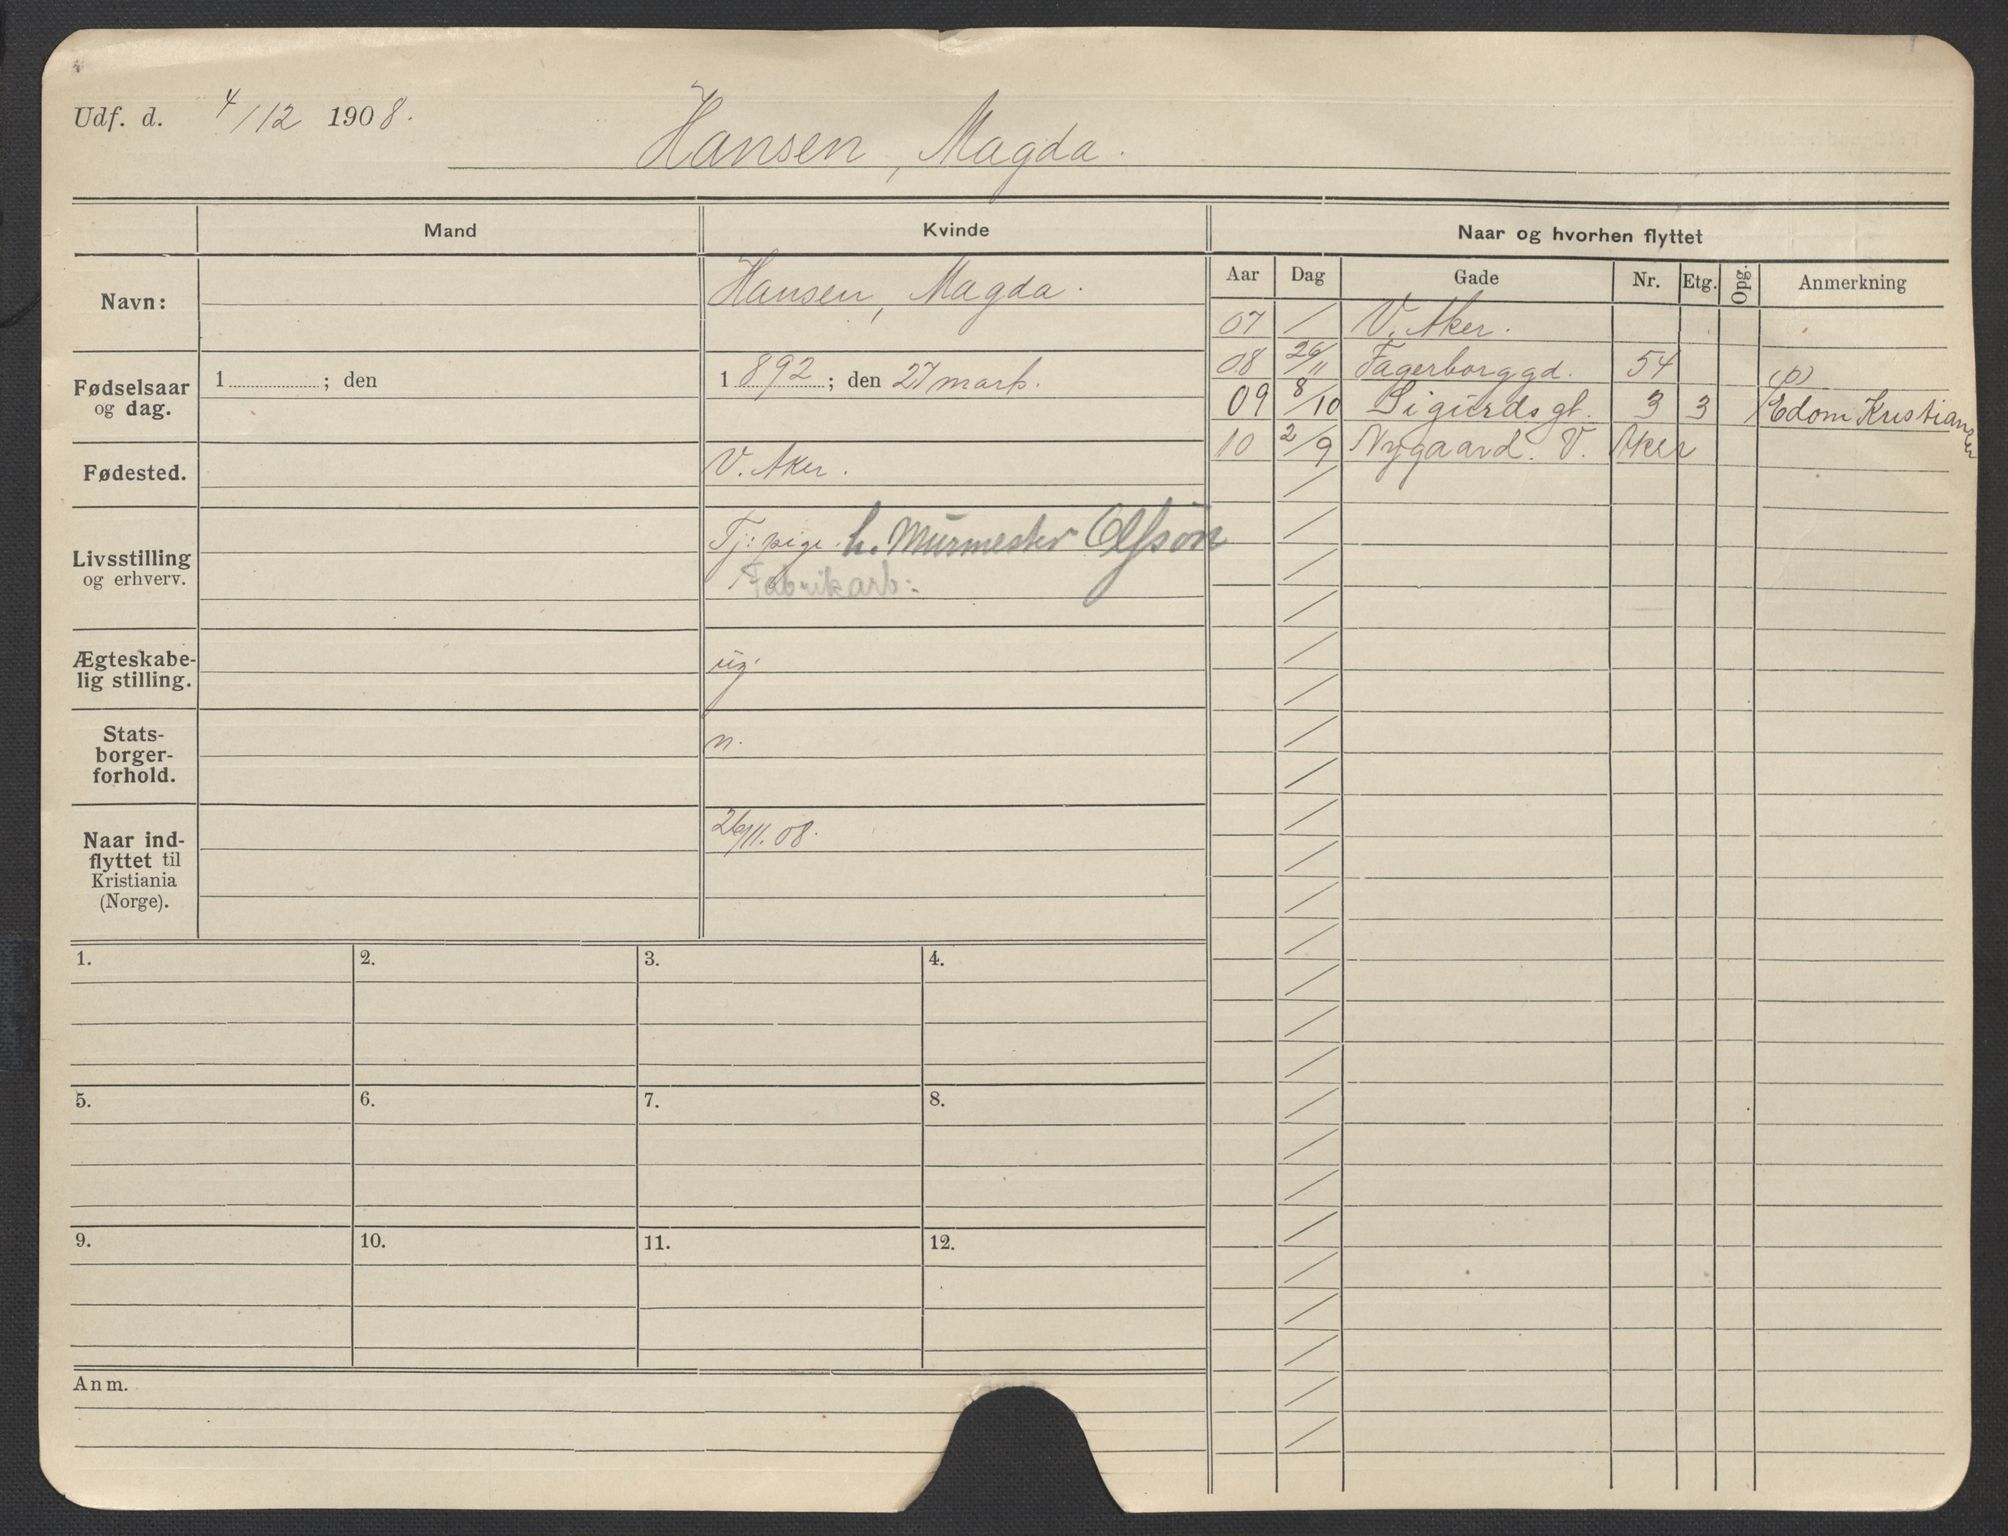 Udf. d. 4/12 1908.
Hansen, Magda.
Mand
Kvinde
Naar og hvorhen flyttet
Navn:
Hansen, Magda.
Fødselsaar
og dag.
1 ; den
1 892 ; den 27 marts.
Fødested.
V. Aker.
Livsstilling
og erhverv.
Tj: pige. h. Murmester Olfson
Fabrikarb:
Ægteskabe-
lig stilling.
ug.
Stats-
borger-
forhold.
n.
Naar ind-
flyttet til
Kristiania
(Norge).
26/11.08.
Aar Dag Gade Nr. Etg. Opg. Anmerkning
07 / V. Aker.
08 26/11 Fagerborggd. 54 (p)
09 8/10 Sigurdsgt. 3 3 Edom Kristiansen
10 2/9 Nygaard. V. Aker
1. 2. 3. 4.
5. 6. 7. 8.
9. 10. 11. 12.
Anm.